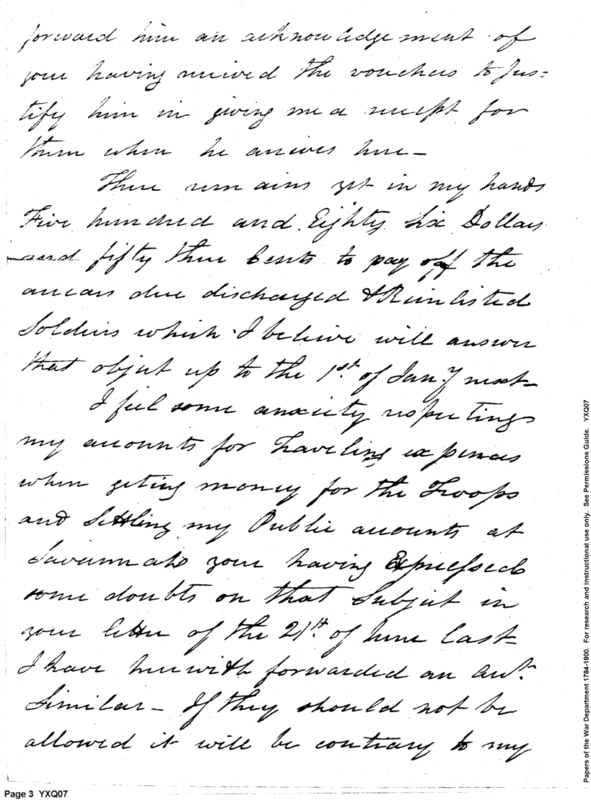 forward him an acknowledgement of
your having recived the vouchers to Jus=
tify him in giving me a receipt for
them when he arrives here -
There remains yet in my hands
Five hundred and Eighty Six Dollars
and fifty three Cents to pay off the
arrears due discharged & Reinlisted
Soldiers which I believe will answer
that object up to the 1st. of Jany next-
I feel some anxiety respecting
my accounts for traveling expences
when geting money for the Troops
and Settling my Public accounts at
Savannah your having Expressed
some doubts on that Subject in
your letter of the 21st. of June last-
I have herewith forwarded an act.
Similar - If they should not be
allowed it will be contrary to my
Page 3 YXQ07
Papers of the War Department 1784-1800. For research and instructional use only. See Permissions Guide. YXQ07